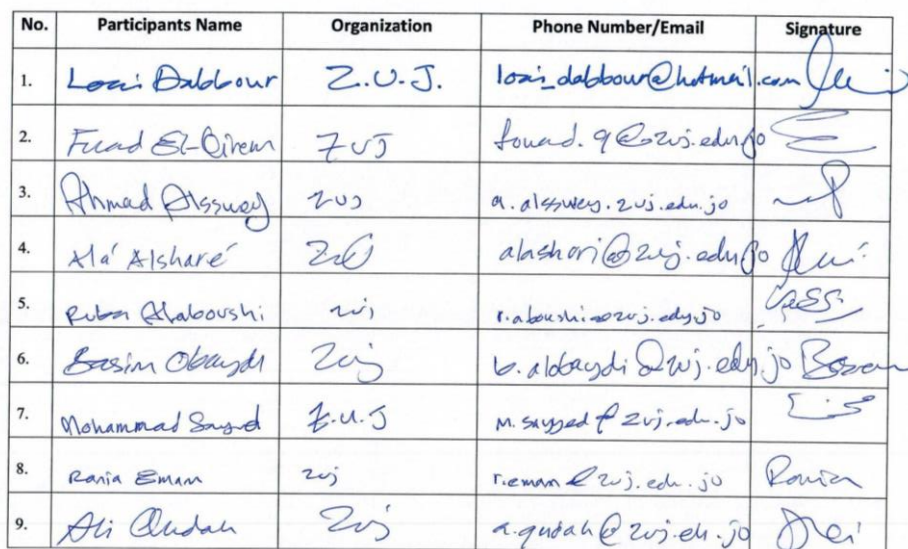 No. Participants Name Organization Phone Number/Email Signature
1. Loai Dabbour Z.U.J. loai_dabbour@hotmail.com
2. Fuad El-Qirem ZUJ fouad.q@zuj.edu.jo
3. Ahmad Alsswey zuj a.alsswey.zuj.edu.jo
4. Ala' Alsharé ZUJ alashari@zuj.edu.jo
5. Ruba Alaboushi zuj r.aboushi@zuj.edu.jo
6. Basim Obaydi Zuj b.alobaydi@zuj.edu.jo
7. Mohammad Sayed Z.U.J M.sayyed@zuj.edu.jo
8. Rania Eman zuj r.eman@zuj.edu.jo Rania
9. Ali Qudah Zuj a.qudah@zuj.edu.jo